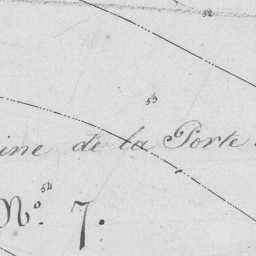 52
53
ine de la Porte
54
N.º 7.